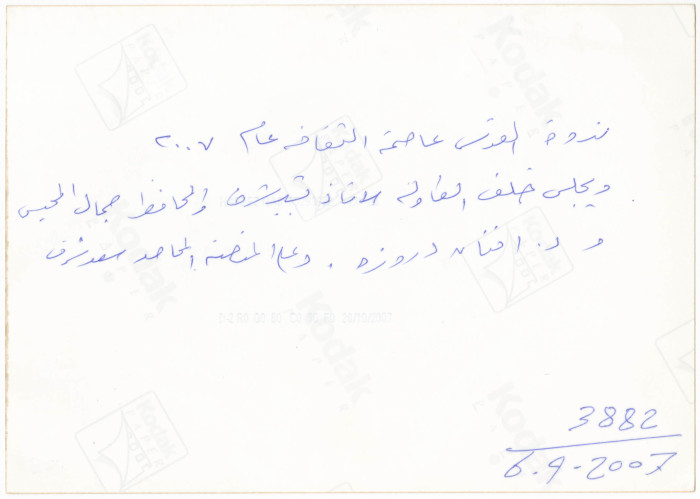 ندوة القدس عاصمة الثقافه عام ٢٠٠٧
ويجلس خلف الطاوله الاستاذ لبيب شرف والمحافظ جمال المحيسن
و د. افنان دروزه . وعلى المنصة المحاضر سعد شرف
3882
6.9-2007
Kodak